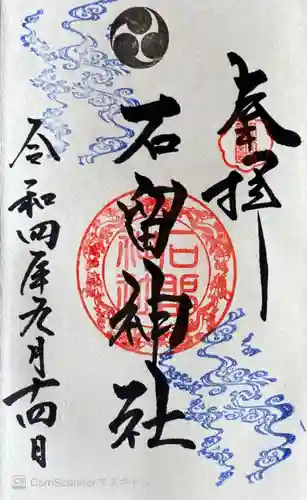 奉拝
石留神社
令和四年九月十四日
CamScannerでスキャン